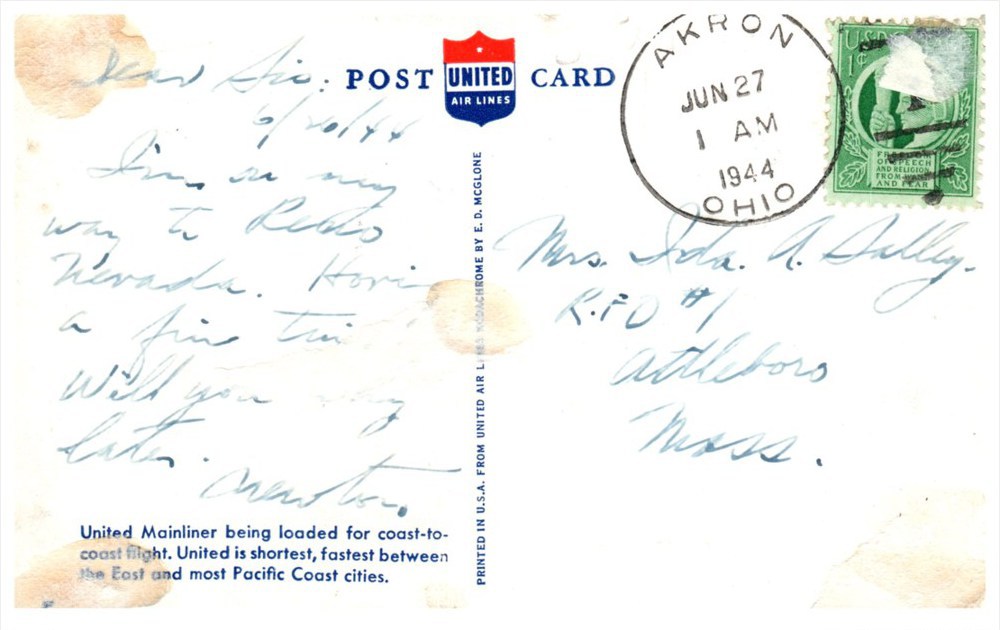 POST UNITED AIR LINES CARD
AKRON
JUN 27
1 AM
1944
OHIO
1¢
FREEDOM
OF SPEECH
AND RELIGION
FROM
AND FEAR
Dear Sis:
6/26/44
I'm on my
way to Reno
Nevada.
a fine
Will you
later.
Newton.
United Mainliner being loaded for coast-to-
coast flight. United is shortest, fastest between
the East and most Pacific Coast cities.
PRINTED IN U.S.A. FROM UNITED AIR LINES KODACHROME BY E. D. MCGLONE
Mrs. Ida. A. Salley.
R.F.D #1
Attleboro
Mass.